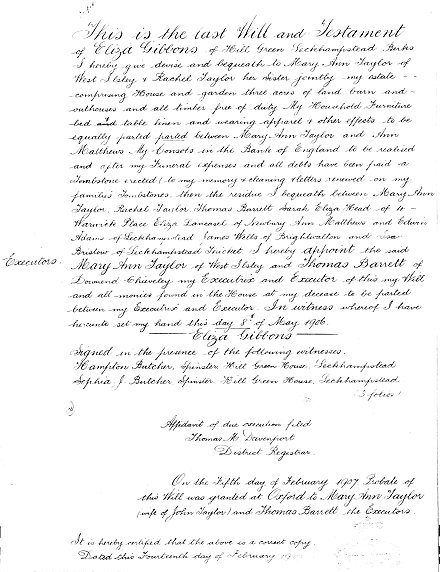 This is the last Will and Testament
of Eliza Gibbons of Hill Green Leckhampstead Berks
I hereby give devise and bequeath to Mary Ann Taylor of
West Ilsley & Rachel Taylor her Sister jointly my estate
comprising House and garden three acres of land barn and
outhouses and all timber free of duty My Household Furniture
bed and table linen and wearing apparel & other effects to be
equally parted parted between Mary Ann Taylor and Ann
Matthews My Consols in the Bank of England to be realised
and after my Funeral expenses and all debts have been paid a
Tombstone erected to my memory & cleaning & letters renewed on my
families Tombstones then the residue I bequeath between Mary Ann
Taylor, Rachel Taylor Thomas Barrett Sarah Eliza Head of
Warwick Place Eliza Lancaset of Newbury Ann Matthews and Edwin
Adams of Leckhampstead James Wells of Brightwalton and
Bristow of Leckhampstead Thicket I hereby appoint the said
Executors. Mary Ann Taylor of West Ilsley and Thomas Barrett of
Downend Chieveley my Executrix and Executor of this my Will
and all monies found in the House at my decease to be parted
between my Executrix and Executor In witness whereof I have
hereunto set my hand this day 8th of May 1906.
Eliza Gibbons
Signed in the presence of the following witnesses.
Hampton Butcher, Spinster Hill Green House, Leckhampstead
Sophia J. Butcher Spinster Hill Green House, Leckhampstead.
3 folios
Affidavit of due execution filed
Thomas M Davenport
District Registrar.
On the Fifth day of February 1907 Probate of
this Will was granted at Oxford to Mary Ann Taylor
(wife of John Taylor) and Thomas Barrett the Executors.
It is hereby certified that the above is a correct copy.
Dated this Fourteenth day of February